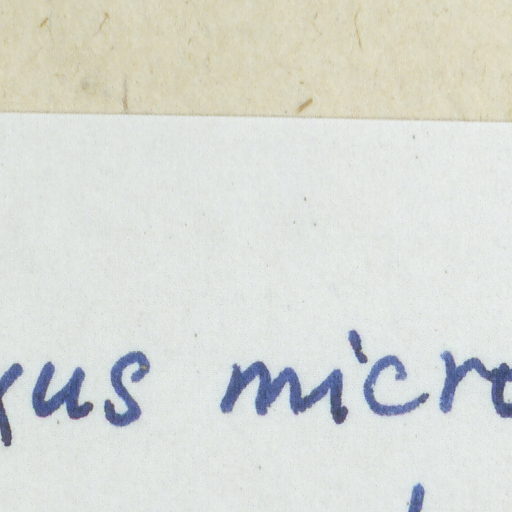 gus micro